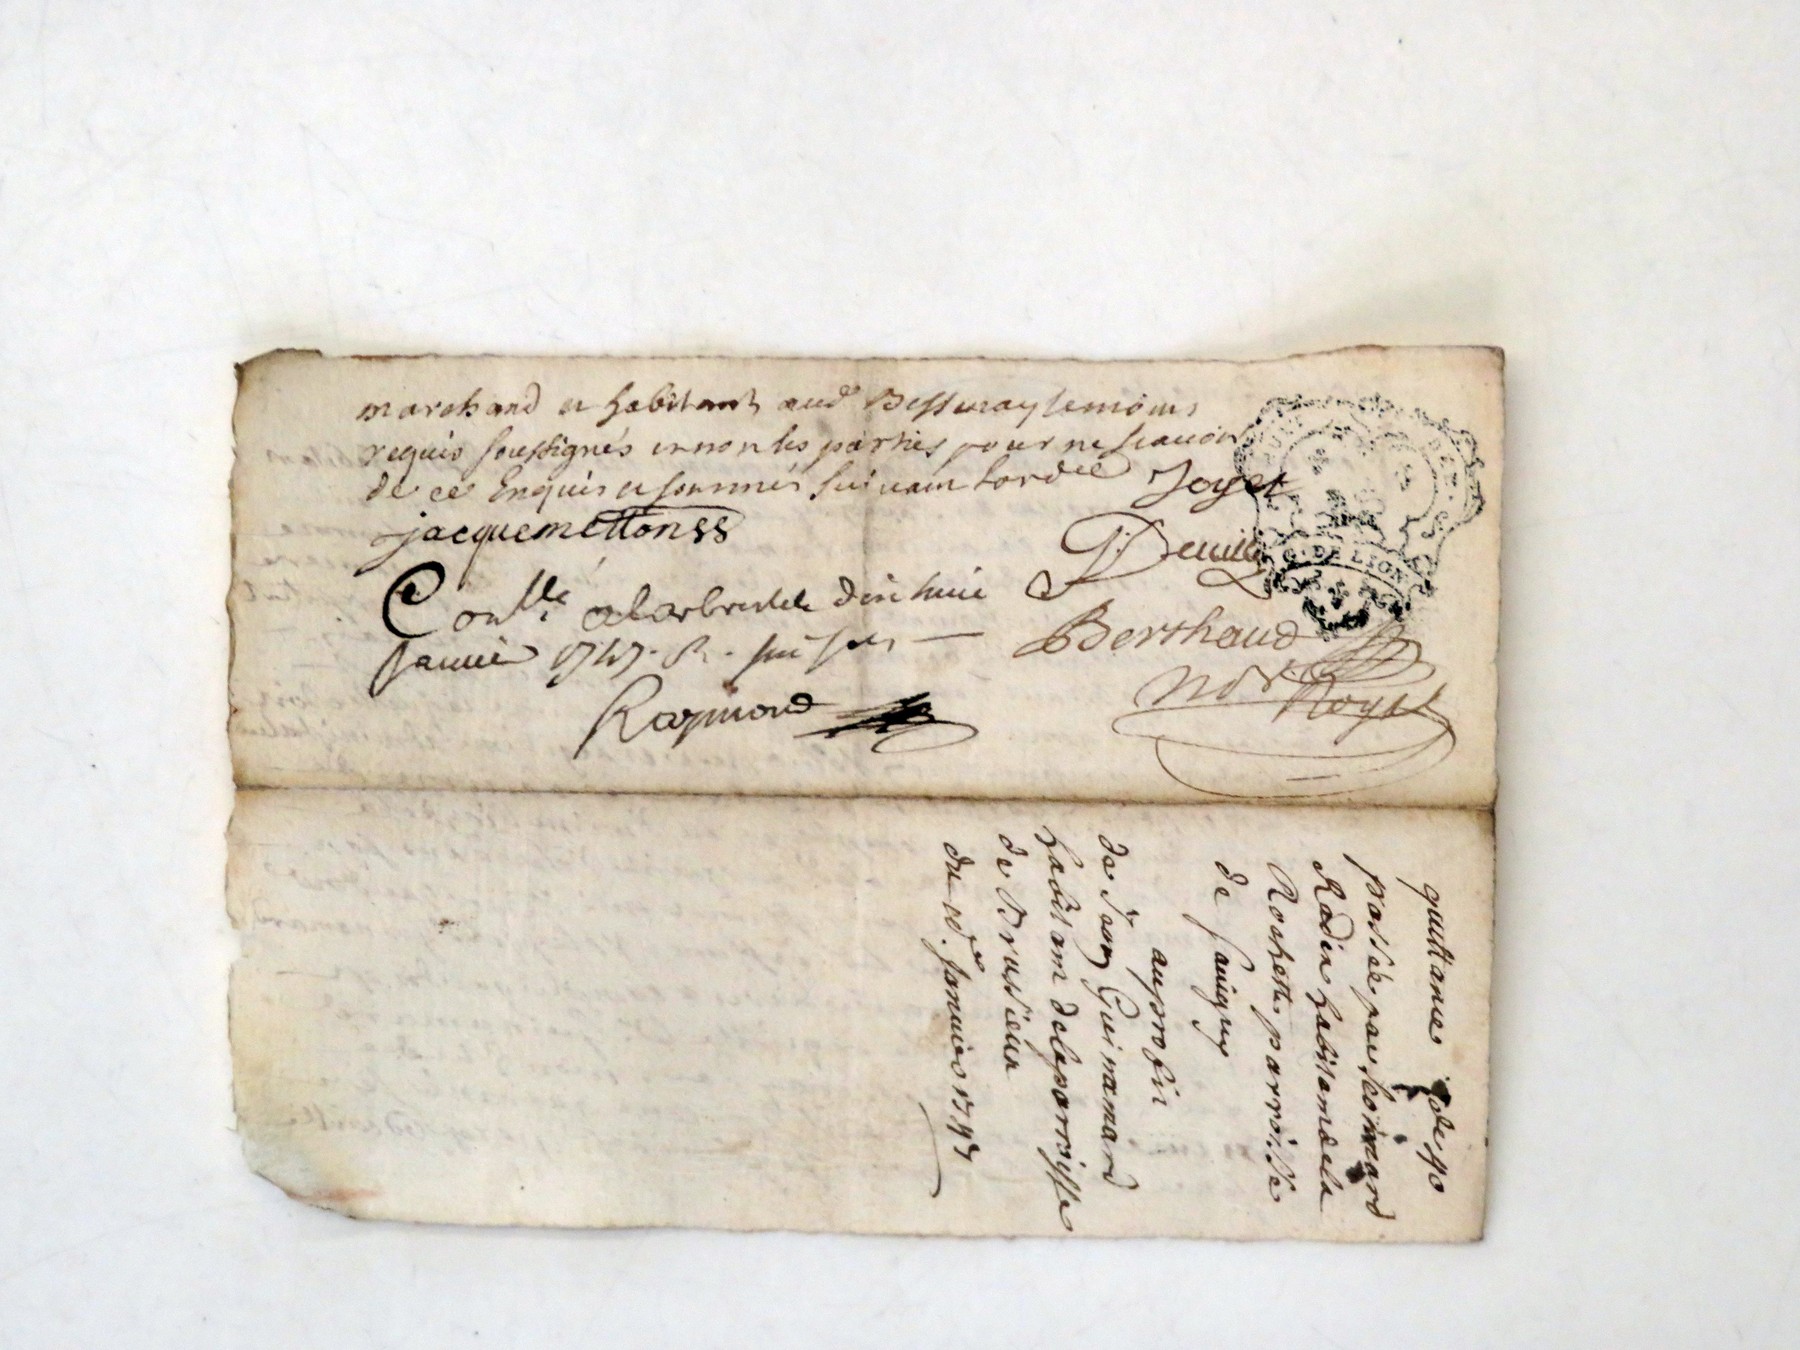 marchand et habitant aud Bessenay temoins
requis soussignés et non les parties pour ne scauoir
de ce Enquis et sommés suiuant lord.ce Joyet
jacquemettonss
P. Deuille
Con.llé alarbresle dix huit
Januié 1747. R.
Berthaud
Raymond
Royet
G. DE LYON
quittance de 90
passée par Léonard
Radix habitant de la
Rochette parroisse
de Sauigny
au profit
de Jean Guinamard
habitant de la parroisse
de Brussieu
du 10.e Januier 1747